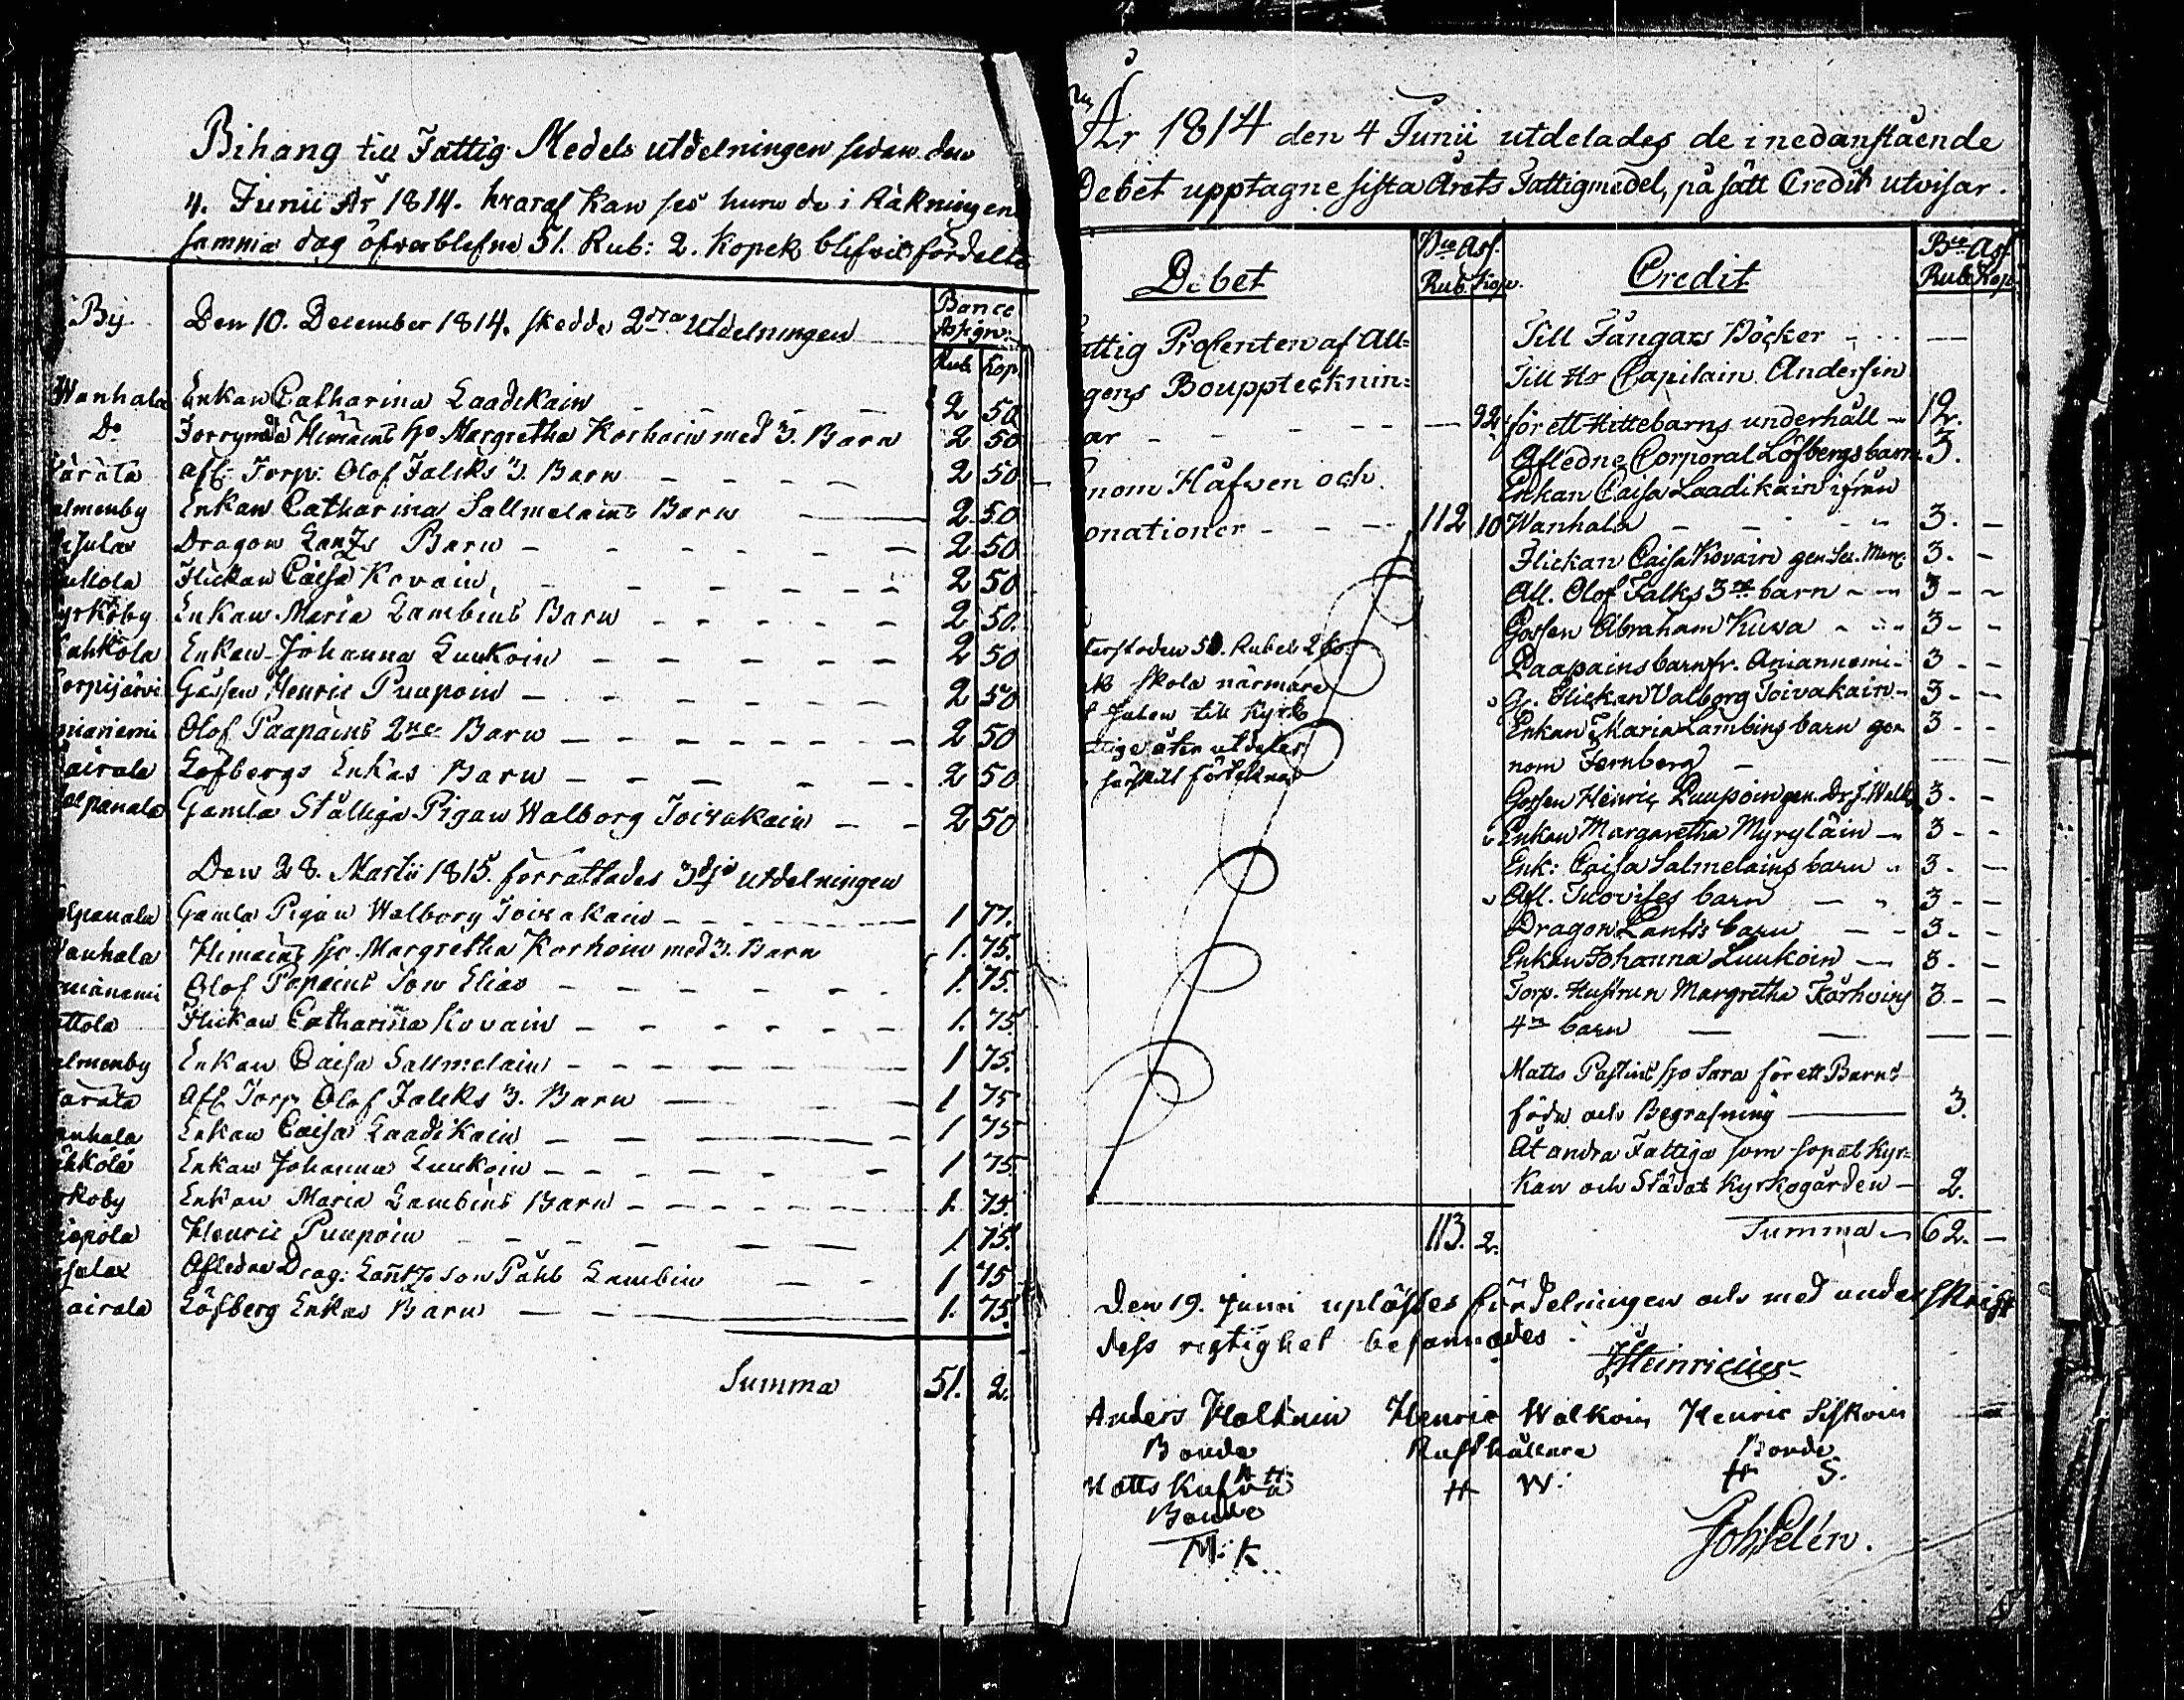 Bihang till Fattig Medels utdelningen sedan den
4. Junii År 1814. hvaraf kan ses huru de i Räkningen
samma dag öfverblefne 51. Rub: 2. Kopek blifvit fördelte
By Den 10. December 1814. skedde 2dra Utdelningen Banco Assign:
Rub. Kop.
Wanhala Enkan Catharina Laadikain 2 50
Do Margretha Korhoin med 3. Barn 2 50
ärätä afl. Torp. Olof Falcks 3. Barn 2 50
almenby Enkan Catharina Sallmelains Barn 2 50
Dragon Lantzs Barn 2 50
Flickan Caisa Kovain 2 50
yrkoby Enkan Maria Lambins Barn 2 50.
ahkola Enkan Johanna Luukoin 2 50
orpijärvi Gossen Henric Puupoin 2 50
nianiemi Olof Paapains 2ne Barn 2 50
airala Löfbergs Enkas Barn 2 50
alpanala Gamla Pigan Walborg Toivakain 2 50
Den 28. Martii 1815. förrättades 3dje utdelningen
alpanala Gamla Pigan Walborg Toivakain 1 77.
Wanhala Himains ho Margretha Korhoin med 3. Barn 1. 75.
nianemi Olof Papains Son Elias 1. 75.
ttola Flickan Catharina Kovain 1. 75.
almenby Enkan Caisa Sallmelain 1 75.
arata Afl. Torp Olof Falcks 3. Barn 1 75
anhala Enkan Caisa Laadikain 1 75
ahkola Enkan Johanna Luukoin 1 75.
rkoby Enkan Maria Lambins Barn 1. 75.
Henric Puupoin 1. 75.
Afledne Drag: Lantzs son Påhl Lambin 1 75
airala Löfberg Enkas Barn 1. 75.
Summa 51. 2.
År 1814 den 4 Junii utdelades de i nedanstående
Debet upptagne sista Årets Fattigmedel, på sätt Credit utvisar.
Debet Bco Ass. Rub. Kop.
attig Procenten af All=
gens Bouppteckning=
ar 92
nom Håfven och
onationer 112 10
terstoden 51. Rubel 2 ko
skola närmare
Julen till Kyrk
ttige åter utdelas
särskilt förtekna
113. 2.
Credit Bco Ass. Rub. Kop.
Till Fångars Böcker
Till Hr Capitain Andersin
för ett Hittebarns underhåll 12.
Afledne Corporal Löfbergs barn 3.
Enkan Caisa Laadikain ifrån
Wanhala 3.
Flickan Caisa Kovain 3.
All. Olof Falks 3ne barn 3
Gossen Abraham Kuva 3
Paapains barn fr. Anianniemi 3
Flickan Valborg Toivakain 3
Enkan Maria Lambins barn ge 3
nom Fernberg
Gossen Henric Puupoin 3
Enkan Margaretha Myryläin 3
Enk: Caisa Salmelains barn 3.
Afl. Tuovises barn 3
Dragon Lantzs barn 3.
Enkan Johanna Luukoin 3.
Torp. Hustrun Margretha Kårhoins 3
4ra barn
Matts Pastins ho Sara för ett Barns
föda och Begrafning 3.
At andra Fattiga som sopat Kyr=
kan och Städat Kyrkogården 2.
Summa 62.
Den 19. Junii uplästes fördelningen och med underskrift
dess rigtighet befannedes.
Heinricius
Anders Halkoin Henric Walkoin Henric Siskoin
Bonde Rusthållare Bonde
H W: H S.
Matts Kufva
Bonde
M: K.